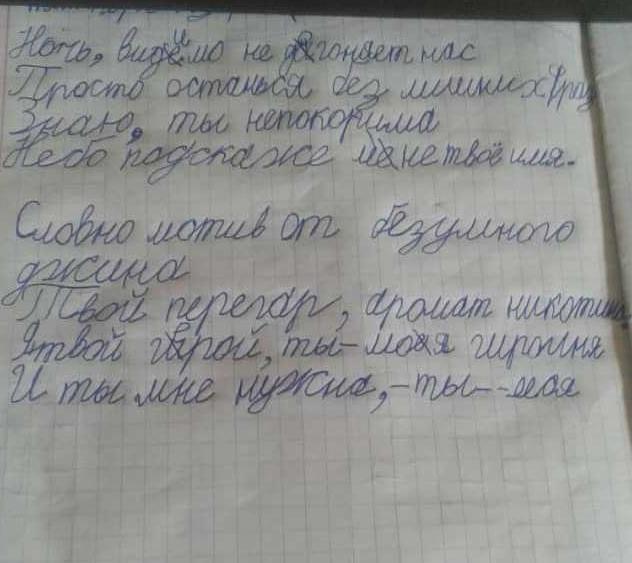 Ночь, видимо не догоняет нас
Просто останься без лишних фраз
Знаю, ты непокорима
Небо подскаже мне твоё имя.
Словно мотив от безумного
джина
Твой перегар, аромат никотина,
Я твой герой, ты - моя гироиня
И ты мне нужна, - ты -- моя